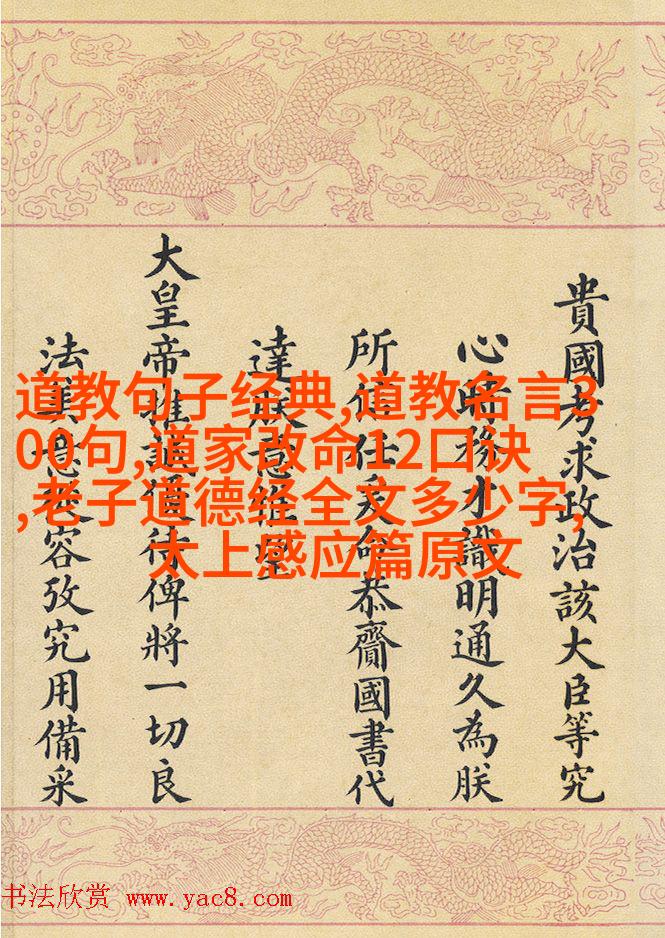 貴國考求政治該大臣等究
心時務才識明通久為朕
所信任爰命恭齎國書代
達朕意惟望
大皇帝推誠優待俾將一切良
法美意從容攷究用備采
道教句子经典,道教名言3
00句,道家改命12口诀
,老子道德经全文多少字,
太上感应篇原文
书法欣赏 www.yac8.com